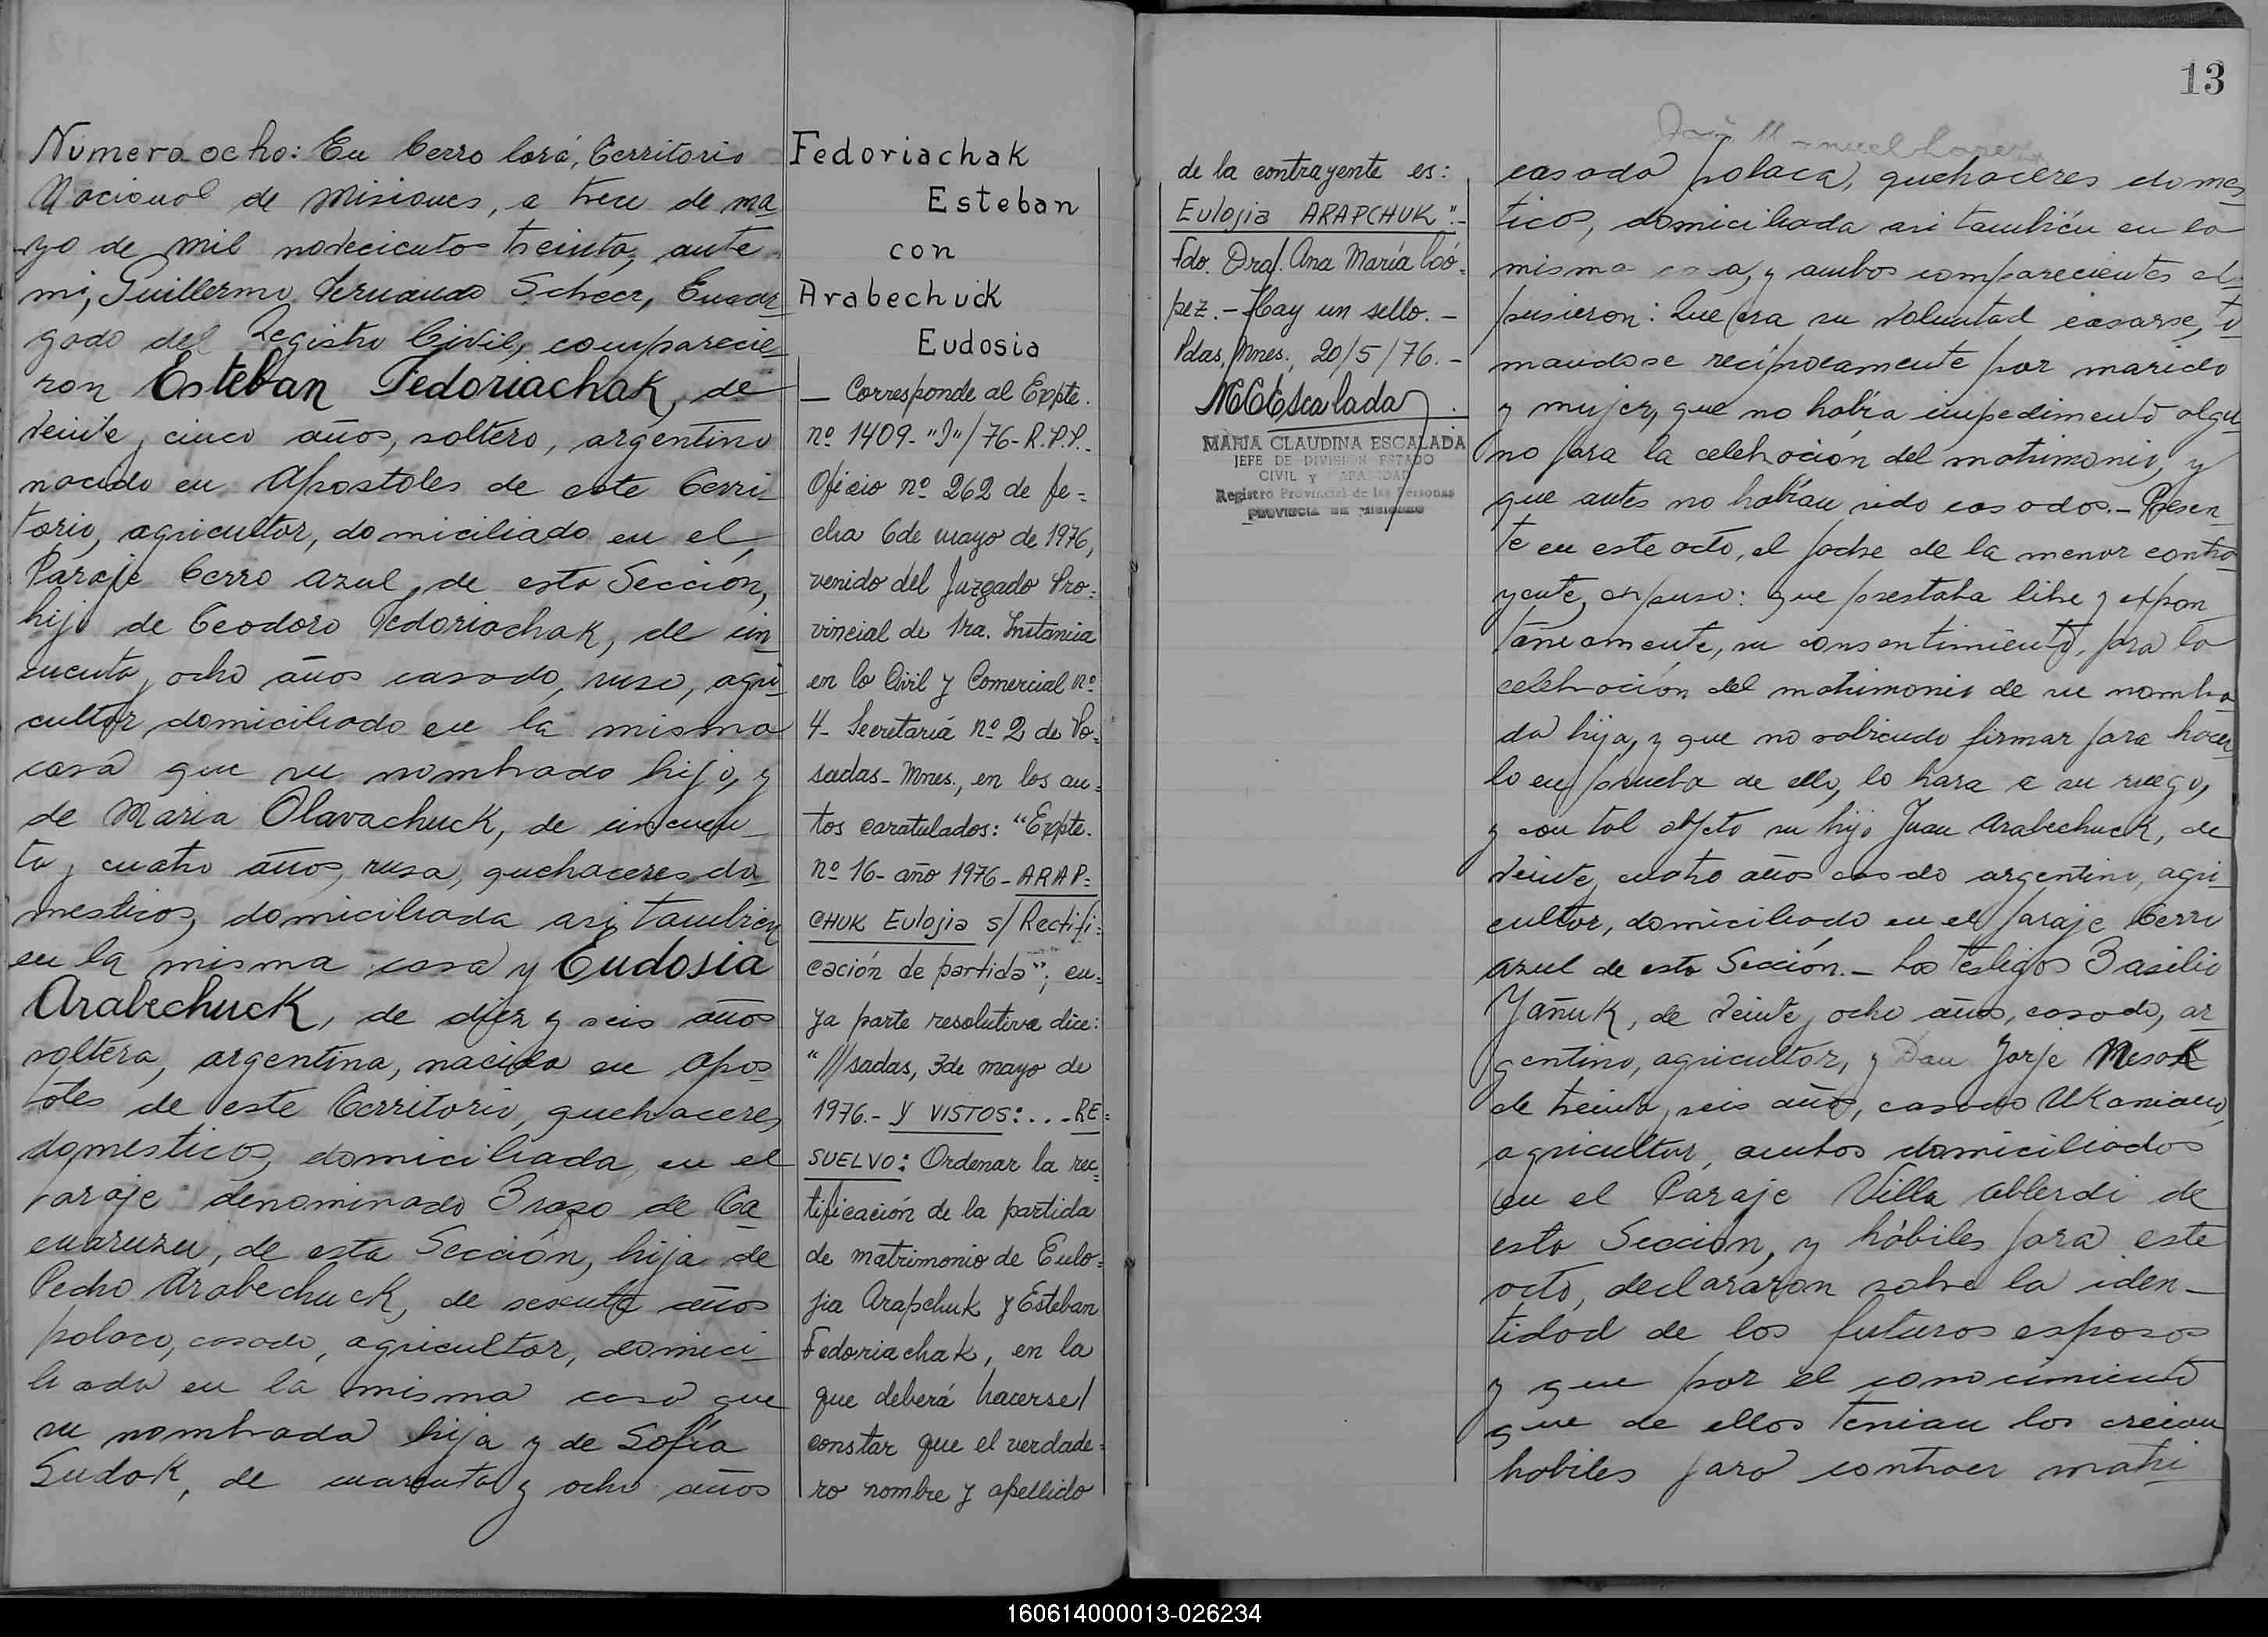 Número ocho: En Cerro Corá, Territorio
Nacional de Misiones, a trece de ma-
yo de mil novecientos treinta, ante
mi, Guillermo Fernando Scheer, Encar-
gado del Registro Civil, comparecie-
ron Esteban Fedoriachak, de
veinte y cinco años, soltero, argentino
nacido en Apostoles de este Terri-
torio, agricultor, domiciliado en el
Paraje Cerro Azul, de esta Sección,
hijo de Teodoro Fedoriachak, de cin-
cuenta y ocho años casado, ruso, agri-
cultor domiciliado en la misma
casa que su nombrado hijo, y
de Maria Olavachuck, de cincuen-
ta y cuatro años, rusa, quehaceres do-
mesticos, domiciliada asi tambien
en la misma casa y Eudosia
Arabechuck, de diez y seis años
soltera, argentina, nacida en Apos-
toles de este Territorio, quehaceres
domesticos, domiciliada en el
Paraje denominado Brazo de Ta-
cuaruzu, de esta Sección, hija de
Pedro Arabechuck, de sesenta años
polaco, casado, agricultor, domici-
liado en la misma casa que
su nombrada hija y de Sofía
Sudok, de cuarenta y ocho años
Fedoriachak
Esteban
con
Arabechuck
Eudosia
— Corresponde al Expte.
nº 1409-"J"/76-R.P.P.-
Oficio nº 262 de fe=
cha 6 de mayo de 1976,
venido del Juzgado Pro=
vincial de 1ra. Instancia
en lo Civil y Comercial nº
4- Secretaría nº 2 de Po=
sadas-Mnes., en los au=
tos caratulados: "Expte.
nº 16- año 1976- ARAP=
CHUK Eulojia s/ Rectifi=
cación de partida"; cu=
ya parte resolutiva dice:
"///sadas, 3 de mayo de
1976.- Y VISTOS:...-RE=
SUELVO: Ordenar la rec=
tificación de la partida
de matrimonio de Eulo=
jia Arapchuk y Esteban
Fedoriachak, en la
que deberá hacerse/
constar que el verdade=
ro nombre y apellido
de la contrayente es:
Eulojia ARAPCHUK".-
Fdo. Dra. Ana María Coó=
pez.- Hay un sello.-
Pdas, Mnes., 20/5/76.-
MCEscalada
MARIA CLAUDINA ESCALADA
JEFE DE DIVISION ESTADO
CIVIL Y CAPACIDAD
Registro Provincial de las Personas
PROVINCIA DE MISIONES
13
casada polaca, quehaceres domes-
ticos, domiciliada asi también en la
misma casa, y ambos comparecientes ex-
pusieron: Que era su voluntad casarse, to-
mandose recíprocamente por marido
y mujer, que no había impedimento algu-
no para la celebración del matrimonio, y
que antes no habían sido casados.- Presen-
te en este acto, el padre de la menor contra-
yente, expuso: que prestaba libre y expon-
táneamente, su consentimiento, para la
celebración del matrimonio de su nombra-
da hija, y que no sabiendo firmar para hacer
lo en prueba de ello, lo hara a su ruego,
y con tal objeto su hijo Juan Arabechuck, de
veinte y cuatro años casado argentino, agri-
cultor, domiciliado en el paraje Cerro
Azul de esta Sección.- Los testigos Basilio
Yañuk, de veinte y ocho años, casado, ar-
gentino, agricultor, y Don Jorje Mesok
de treinta y seis años, casado Ukaniano,
agricultor, ambos domiciliados
en el Paraje Villa Alberdi de
esta Sección, y hábiles para este
acto, declararon sobre la iden-
tidad de los futuros esposos
y que por el conocimiento
que de ellos tenian los creian
habiles para contraer matri
160614000013-026234